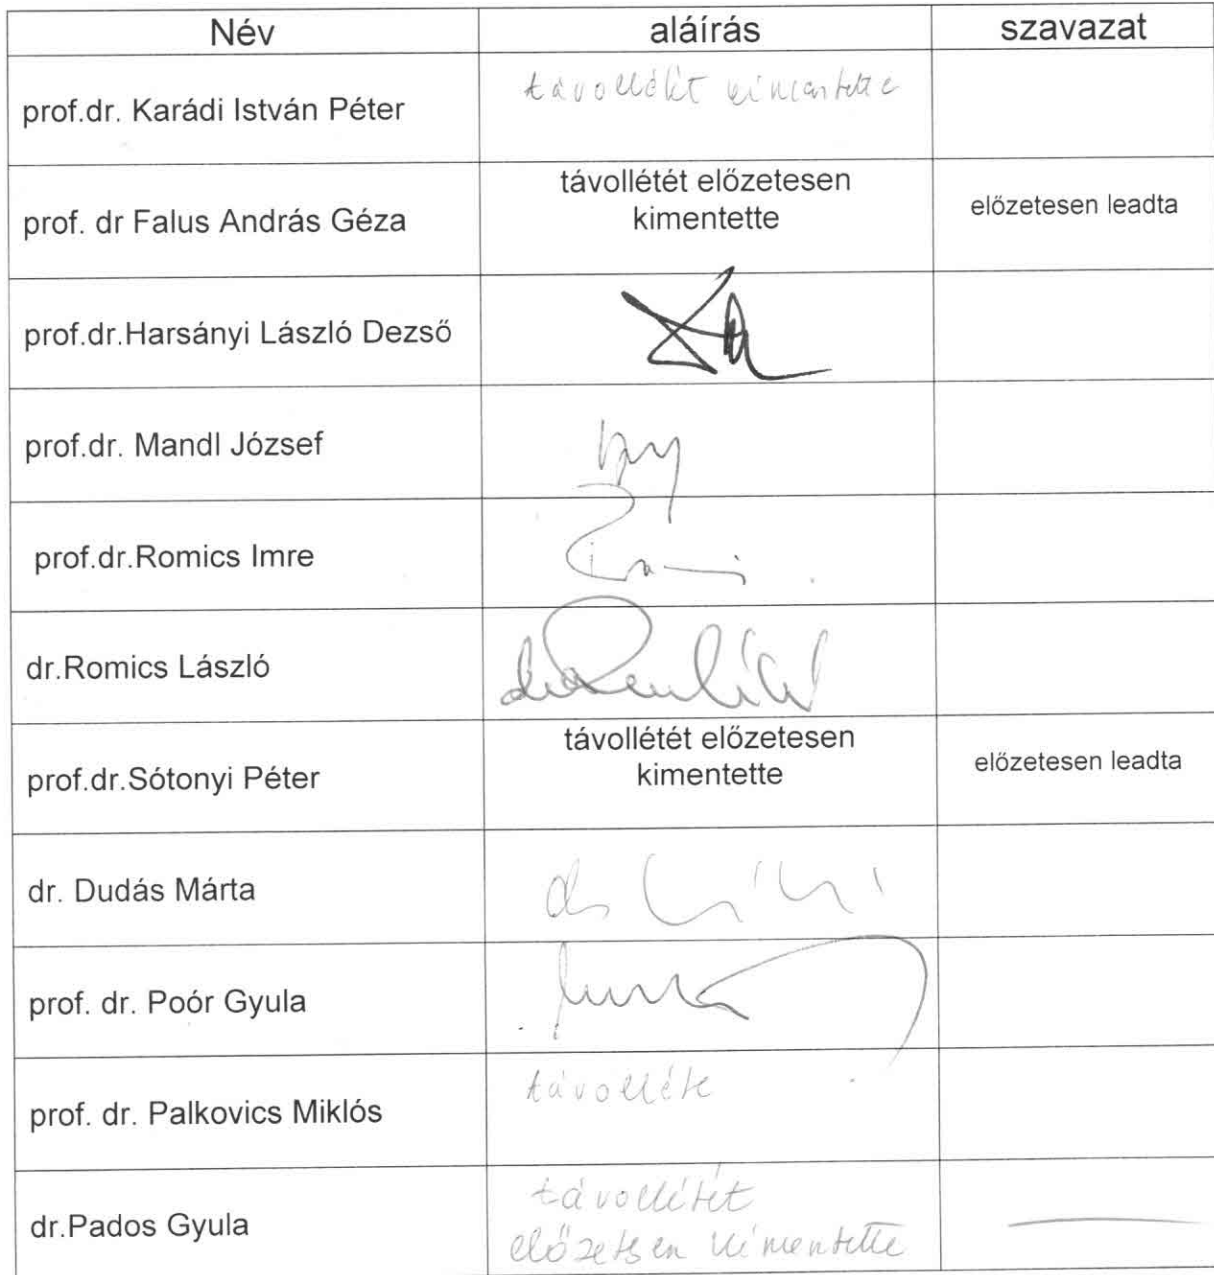 Név aláírás szavazat
prof.dr. Karádi István Péter távollétét kimentette
prof. dr Falus András Géza távollétét előzetesen
kimentette előzetesen leadta
prof.dr.Harsányi László Dezső
prof.dr. Mandl József
prof.dr.Romics Imre
dr.Romics László
prof.dr.Sótonyi Péter távollétét előzetesen
kimentette előzetesen leadta
dr. Dudás Márta
prof. dr. Poór Gyula
prof. dr. Palkovics Miklós
dr.Pados Gyula távollétét
előzetesen kimentette